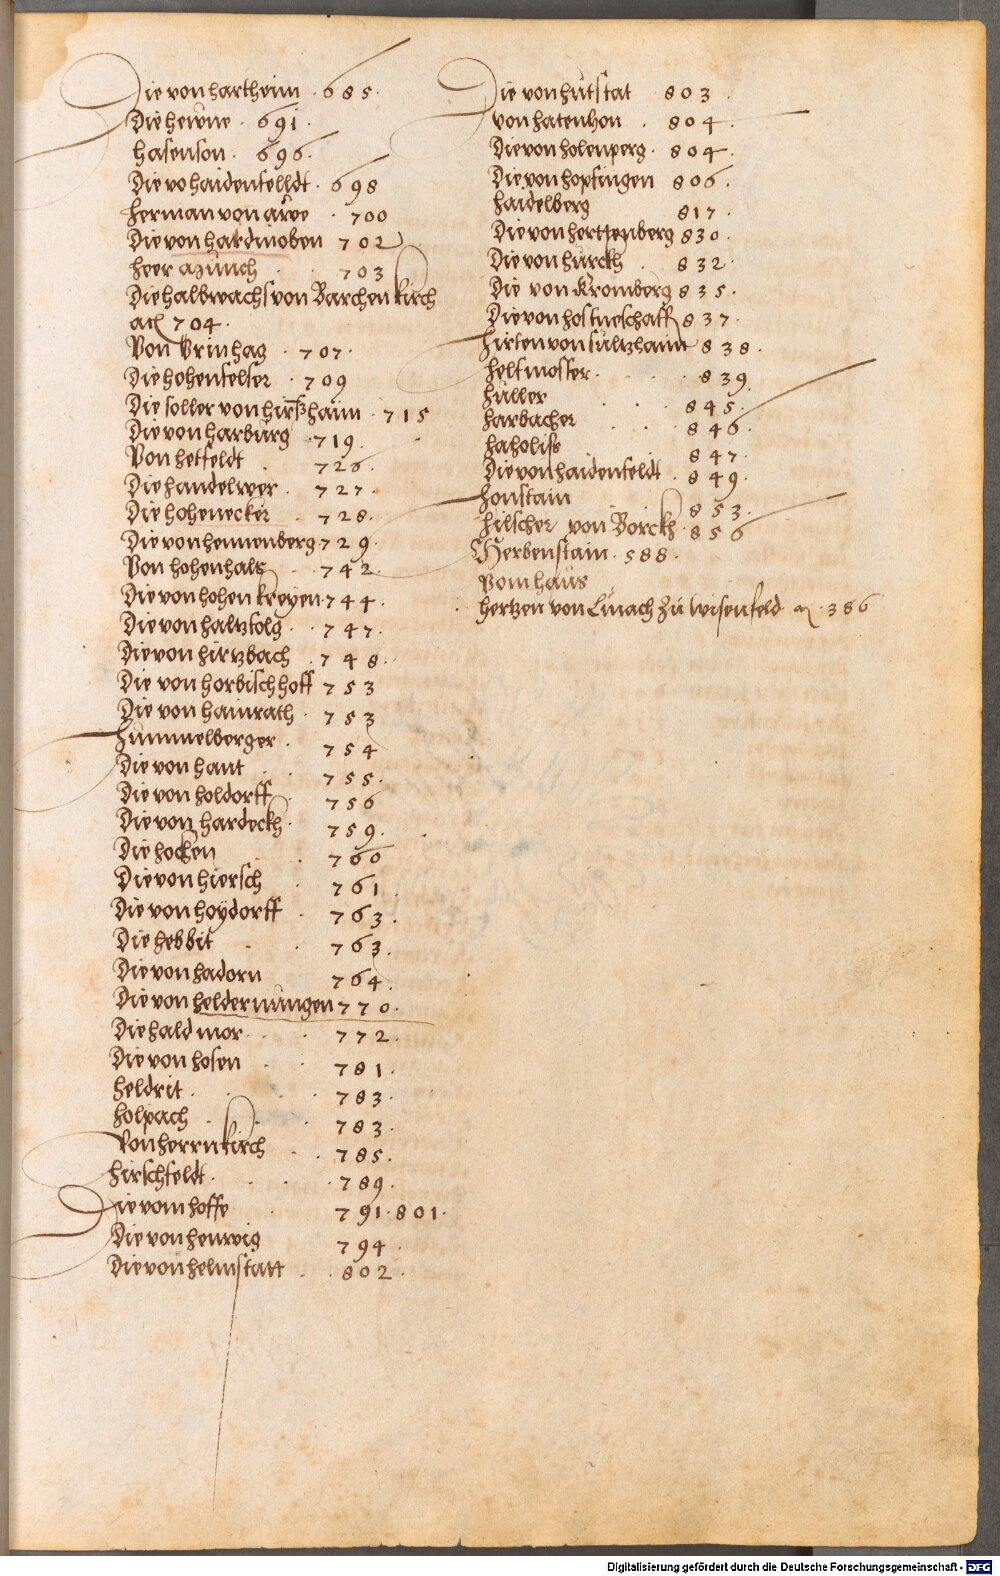 Die von hartheim · 685 ·
Die hewne · 691 ·
hasenson · 696 ·
Die vo haidenfelldt · 698
herman von arwe · 700
Die von hardinoben 702
heer Münch · 703
Die halbwachs von Barchen kirch
ach 704 ·
Von Brinhag · 707 ·
Die hohenfelser · 709
Die soller von hirßhaim · 715
Die von harbůrg · 719 ·
Von hetfeldt · 726 ·
Die handelwer · 727 ·
Die hohenecker · 728 ·
Die von hennenberg 729 ·
Von hohenhals · 742 ·
Die von hohen kreyen 744 ·
Die von haltzfolg · 747 ·
Die von hirtzbach · 748 ·
Die von horbischhoff 753
Die von hainrath · 753
hůmmelberger · 754
Die von hant · 755 ·
Die von holdorff · 756
Die von hardeckh · 759 ·
Die hocken · 760
Die von hiersch · 761 ·
Die von hoÿdorff · 763 ·
Die hebbit · 763 ·
Die von hadorn 764 ·
Die von heldernůngen 770 ·
Die hald mor · 772 ·
Die von hosen · 781 ·
heldrit · 783 ·
holpach · 783 ·
Von herrnkirch · 785 ·
hirschfeldt · 789 ·
Die vom hoffe 791 · 801 ·
Die von henwig 794 ·
Die von helmstatt · 802 ·
Die von hůtstat · 803 ·
von hatenhon · 804 ·
Die von holenperg · 804 ·
Die von hopfingen 806 ·
haidelberg 817 ·
Die von herttenberg 830 ·
Die von hůrckh · 832 ·
Die von Kromberg 835 ·
Die von hostueschaff 837 ·
hirten von sůltzhaim 838 ·
helfmosser · 839
hůller · 845 ·
harbacher · 846 ·
haholise 847 ·
Die von haidenfeldt · 849 ·
honstain · 853 ·
hilscher von Borckh · 856
Herbenstain · 588 ·
Vom haůs
hertzen von Lůnach Zů wisenfeld · 386
Digitalisierung gefördert durch die Deutsche Forschungsgemeinschaft - DFG